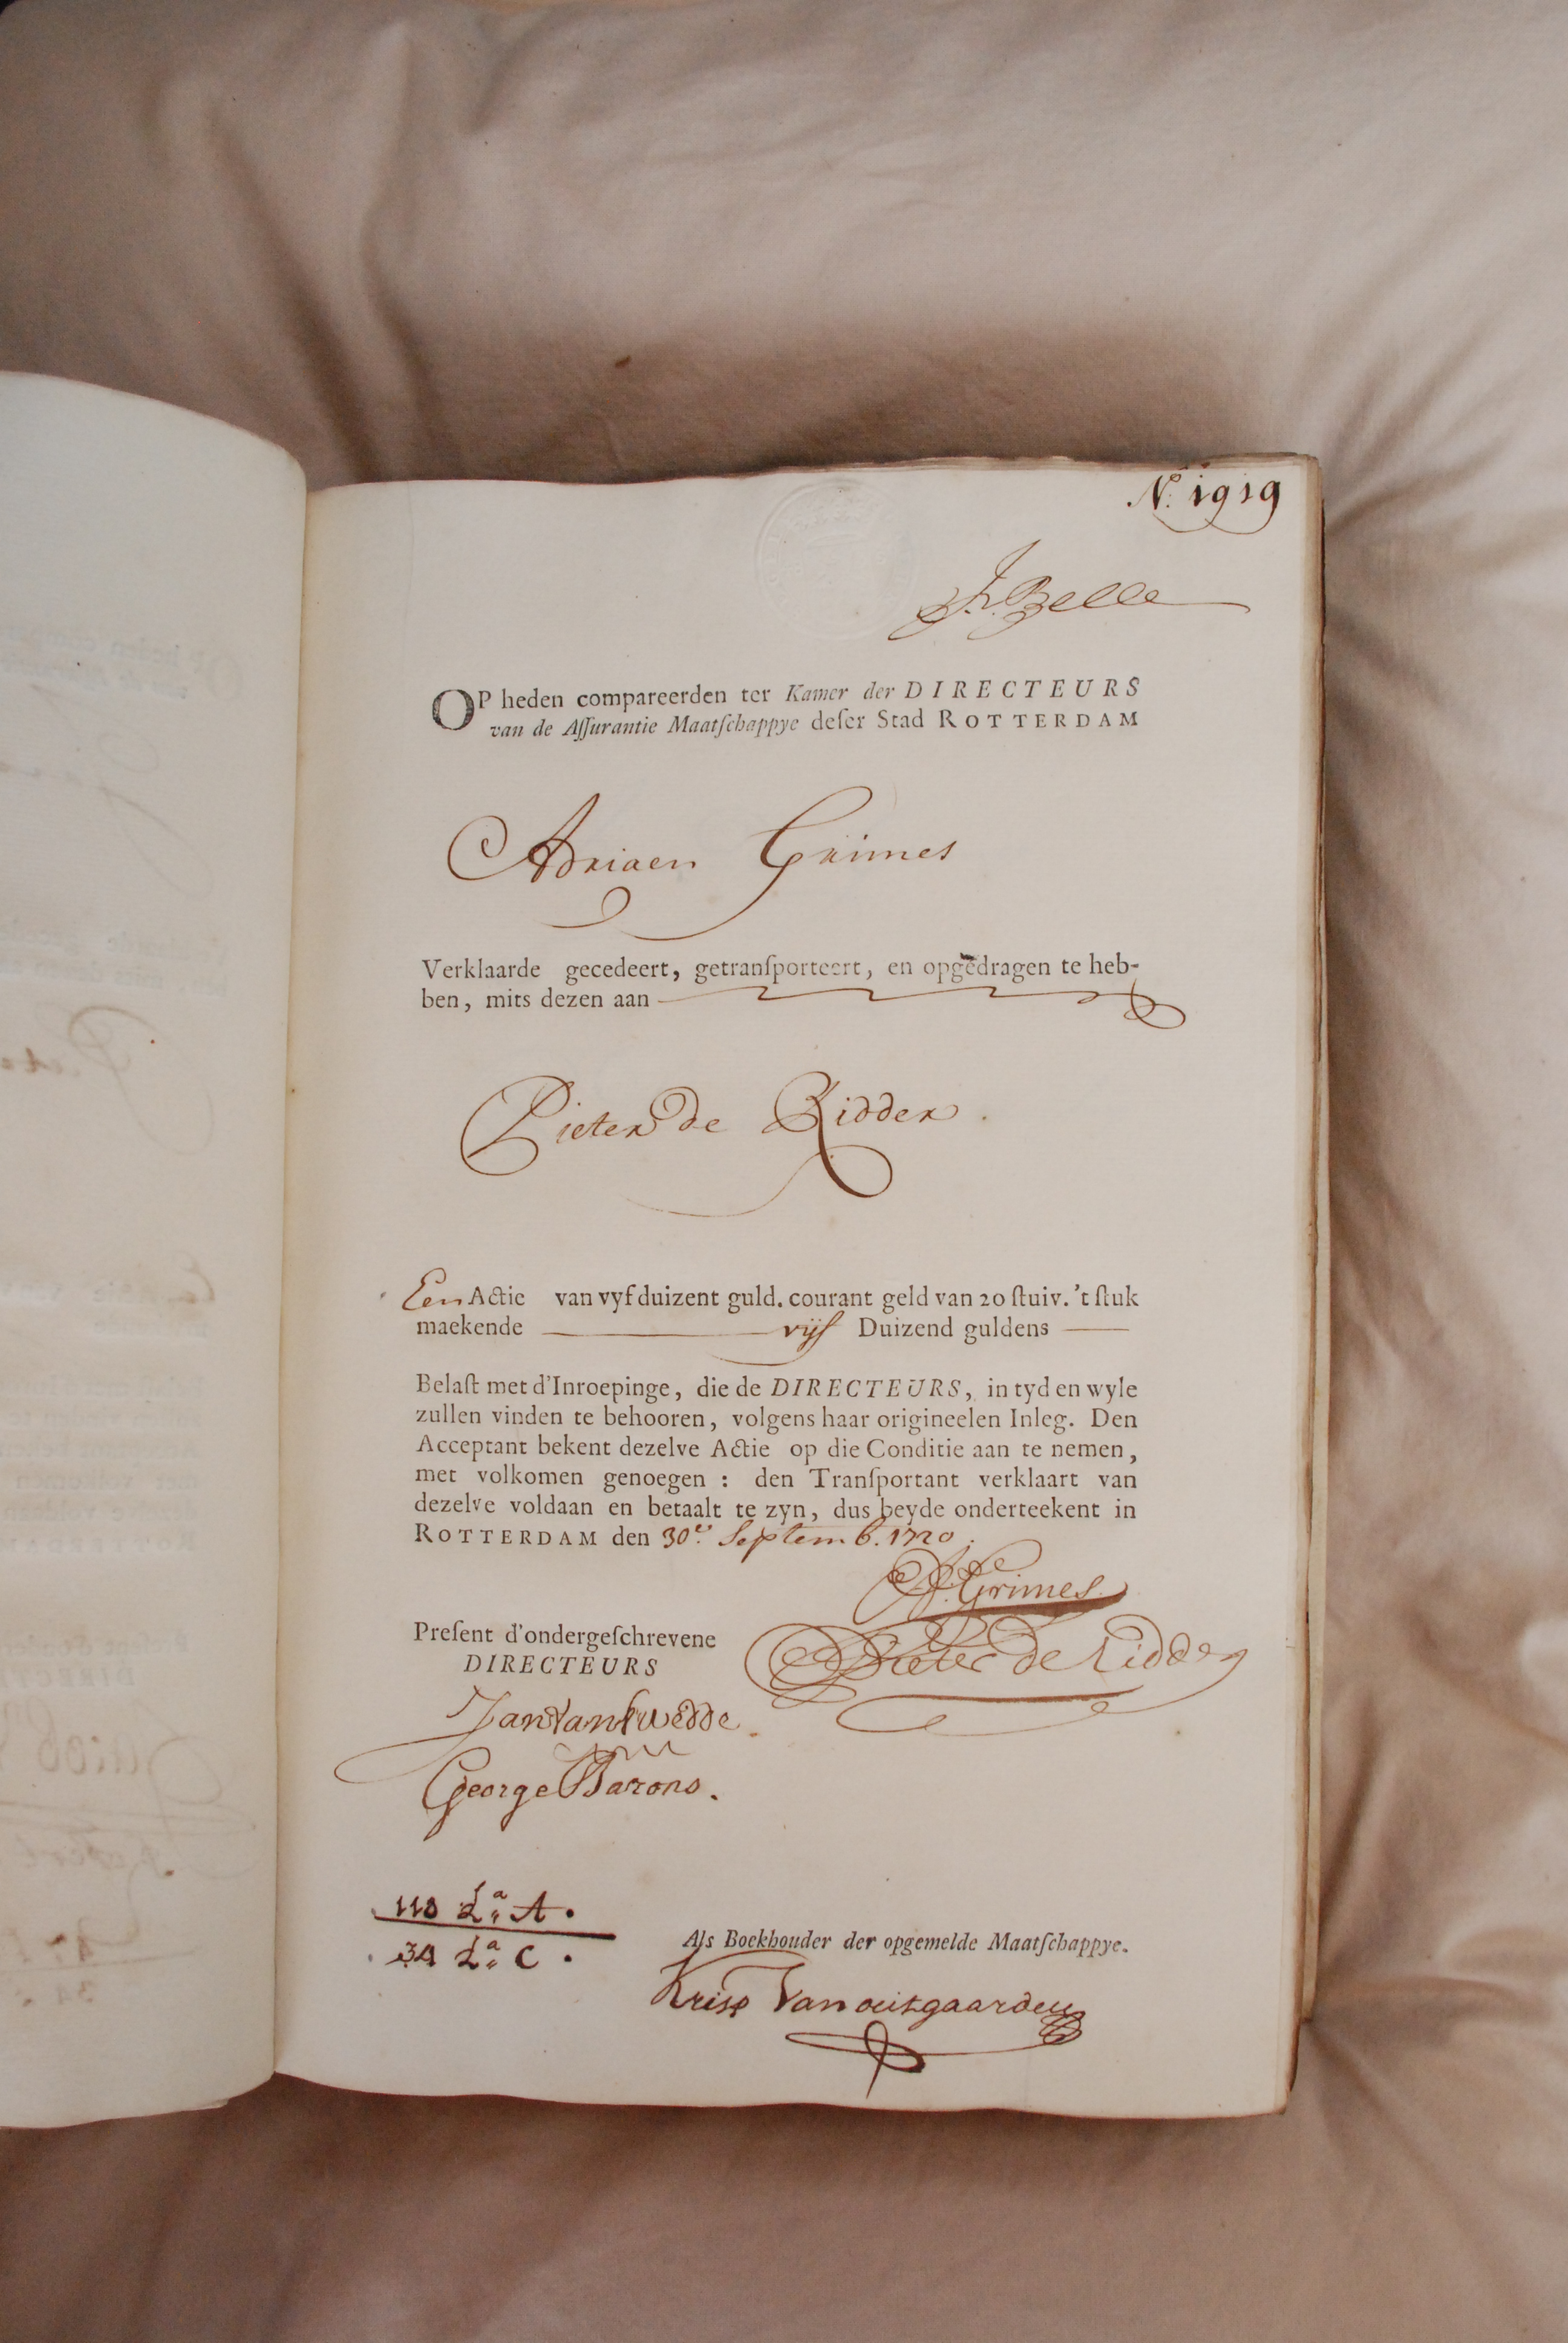 N.º 1919
J. V. Belle
OP heden compareerden ter Kamer der DIRECTEURS
van de Aſſurantie Maatſchappye deſer Stad ROTTERDAM
Adriaen Grimes
Verklaarde gecedeert, getranſporteert, en opgedragen te heb-
ben, mits dezen aan
Pieter de Ridder.
Een Actie van vyf duizent guld. courant geld van 20 ſtuiv. 't ſtuk
maekende vijf Duizend guldens
Belaſt met d'Inroepinge, die de DIRECTEURS, in tyd en wyle
zullen vinden te behooren, volgens haar origineelen Inleg. Den
Acceptant bekent dezelve Actie op die Conditie aan te nemen,
met volkomen genoegen : den Tranſportant verklaart van
dezelve voldaan en betaalt te zyn, dus beyde onderteekent in
ROTTERDAM den 30.e Septemb. 1720.
A. Grimes
Preſent d'ondergeſchrevene
Pieter de Ridder
DIRECTEURS
George Barons.
118 L.a A.
34 L.a C.
Als Boekhouder der opgemelde Maatſchappye.